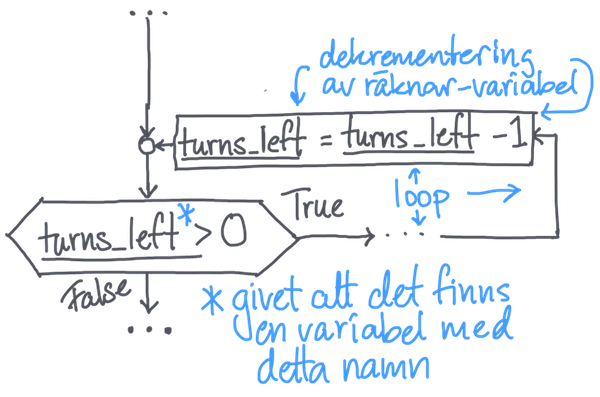 ...
dekrementering
av räknar-variabel
turns_left = turns_left - 1
loop
True
turns_left* > 0
...
False
...
* givet att det finns
en variabel med
detta namn